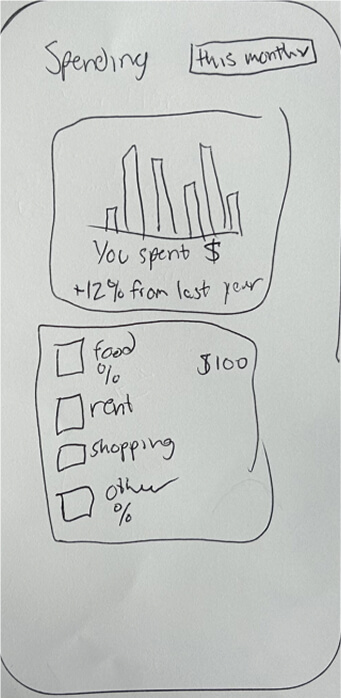 Spending
this month
You spent $
+12% from last year
food
%
$100
rent
shopping
other
%